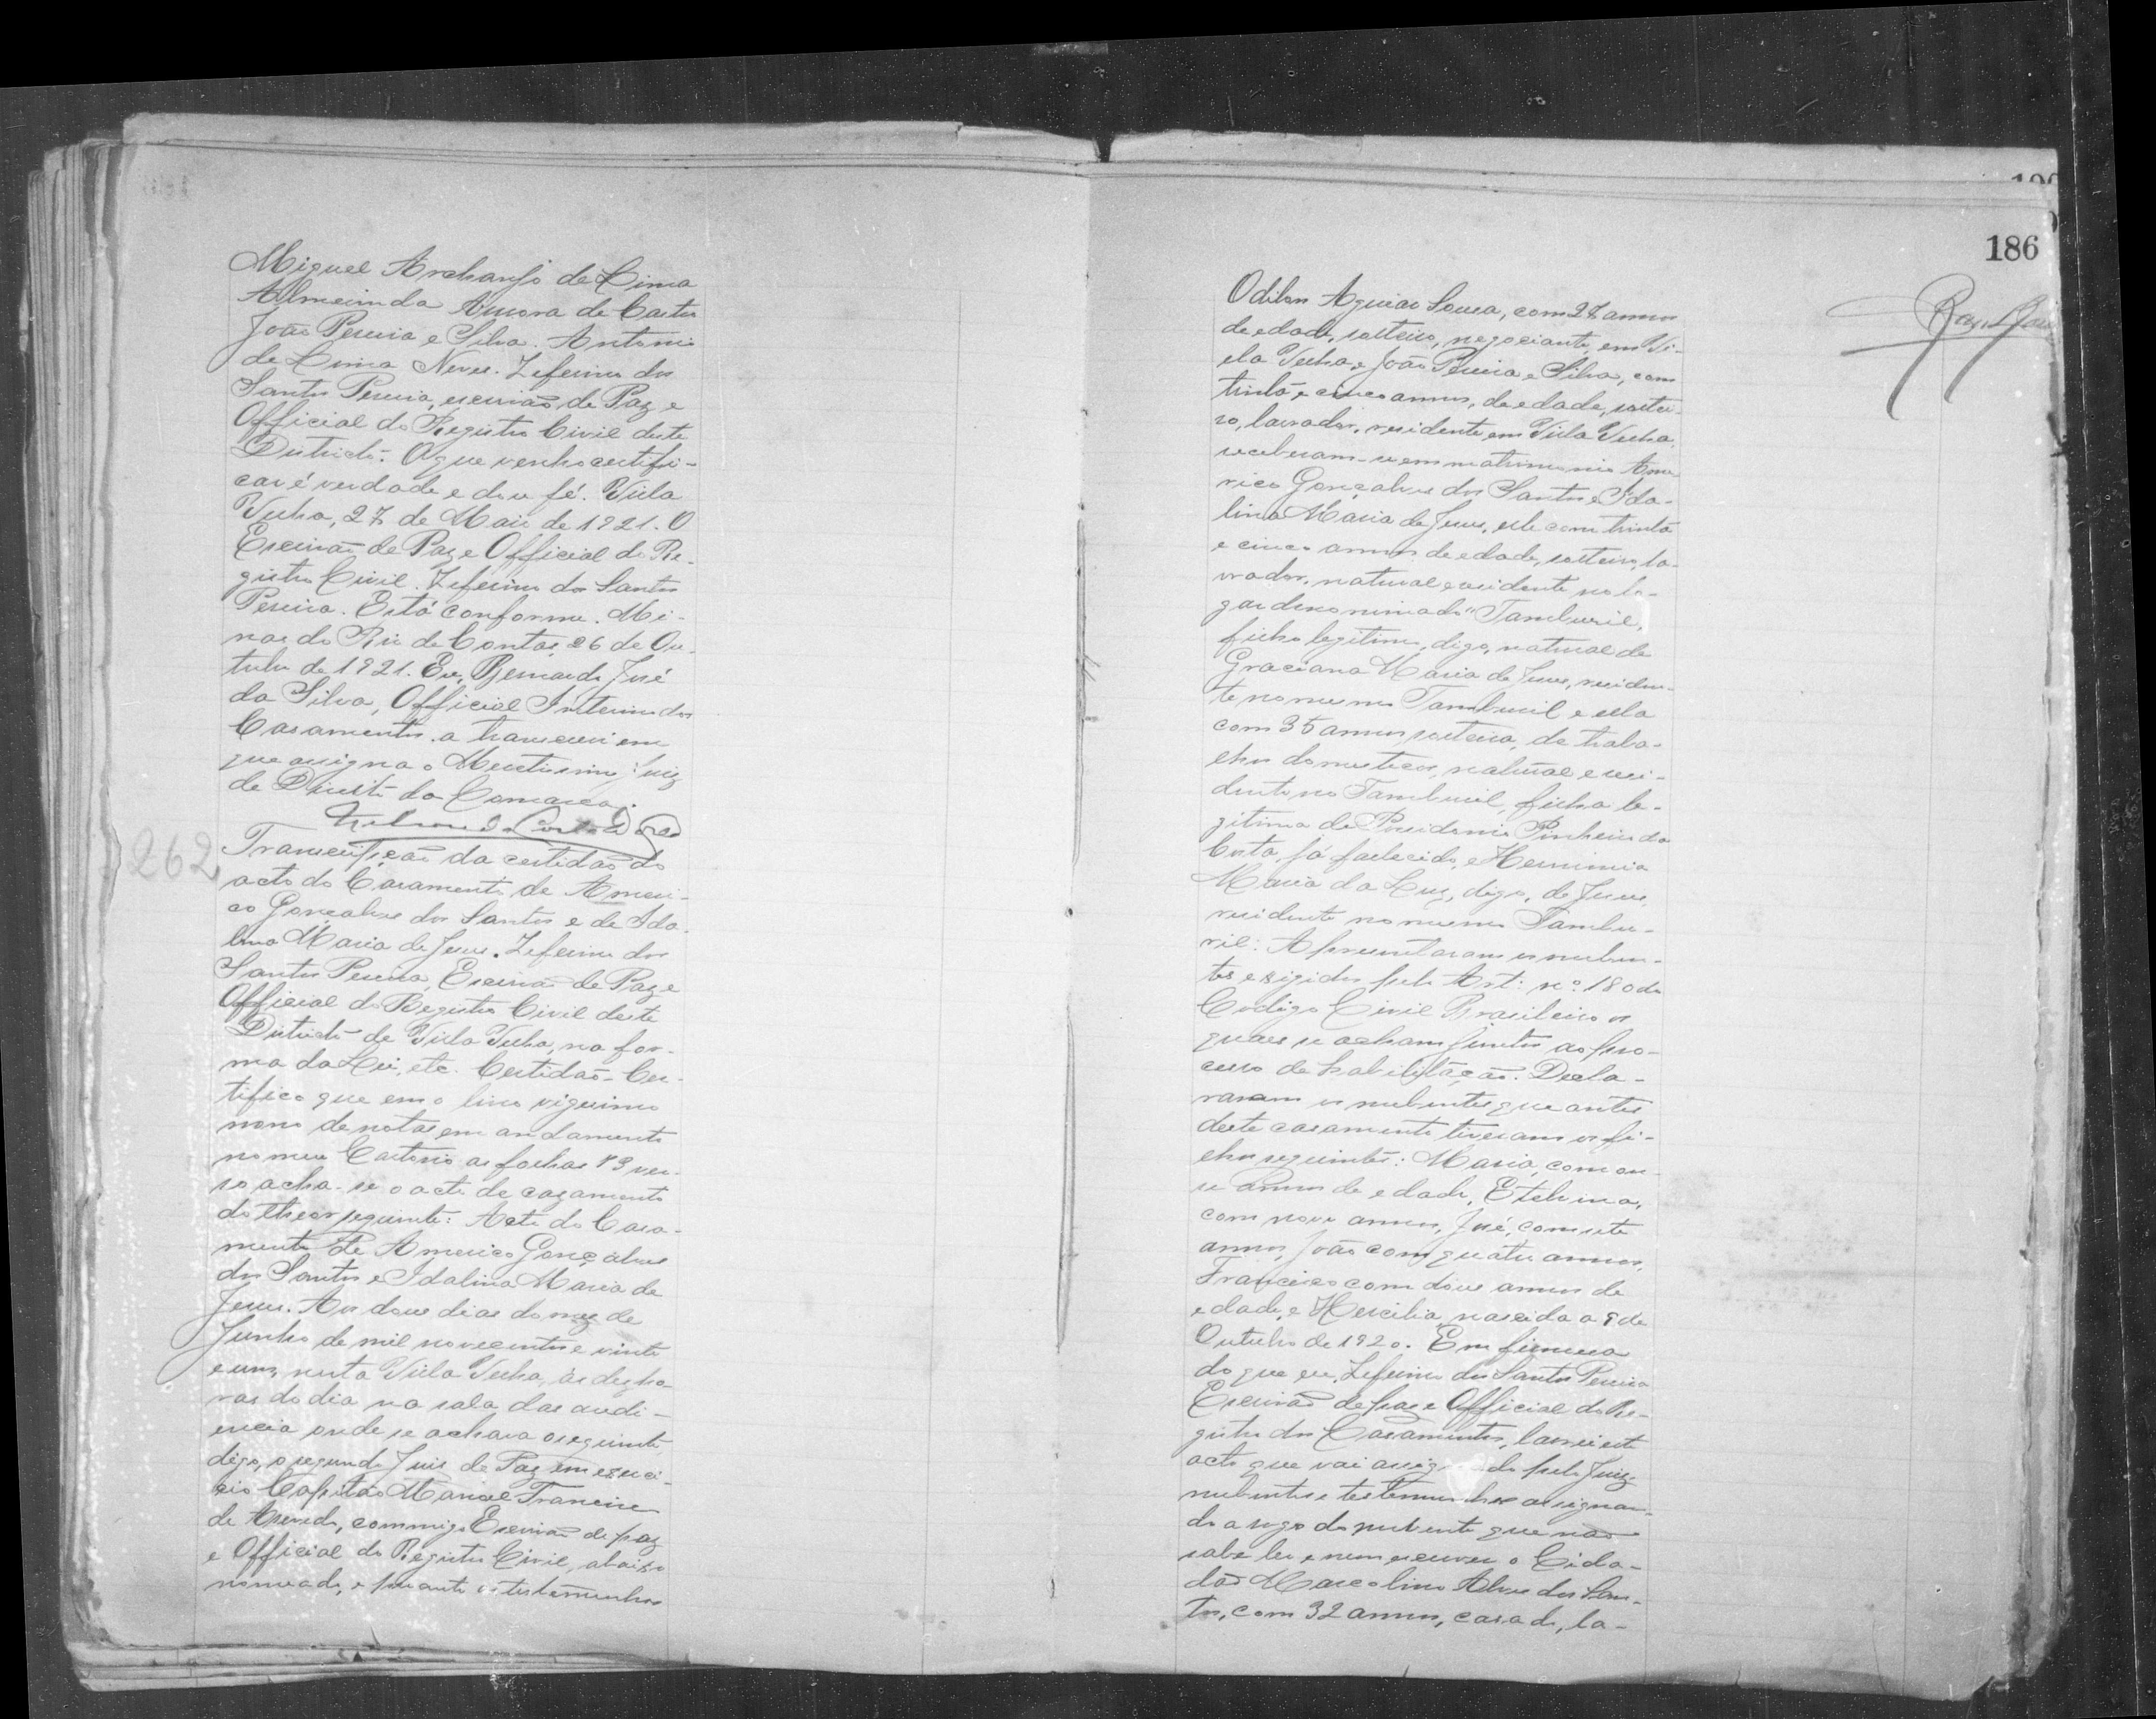 Miguel Archanjo de Lima
Almerinda Aurora de Castro
João Pereira e Silva. Antonio
de Lima Neves. Zeferino dos
Santos Pereira, escrivão de Paz e
Official do Registro Civil deste
Districto. O que venho certifi-
car é verdade e dou fé. Villa
Velha, 27 de Maio de 1921. O
Escrivão de Paz e Official do Re-
gistro Civil. Zeferino dos Santos
Pereira. Está conforme. Mi-
nas do Rio de Contas, 26 de Ou-
tubro de 1921. Eu, Bernardo José
da Silva, Official Interino dos
Casamentos, a transcrevi em
que assigna o Meretissimo Juiz
de Direito da Comarca.
262
Transcripção da certidão do
acto do Casamento de Ameri-
co Gonçalves dos Santos e de Ida-
lina Maria de Jesus. Zeferino dos
Santos Pereira, Escrivão de Paz e
Official do Registro Civil deste
Districto de Villa Velha, na for-
ma da Lei, etc. Certidão - Cer-
tifico que em o livro vigesimo
nono de notas em andamento
no meu Cartorio as folhas 83 ver-
so acha-se o acto de cazamento
do theor seguinte: Acto do Casa-
mento de Americo Gonçalves
dos Santos e Idalina Maria de
Jesus. Aos doze dias do mez de
Junho de mil novecentos e vinte
e um, nesta Villa Velha, ás dez ho-
ras do dia na sala das audi-
encia onde se achava o seguinte
digo, o segundo Juis de Paz em exerci-
cio Capitão Manoel Francisco
de Azevedo, commigo Escrivão de paz
e Official do Registro Civil, abaixo
nomeado, e perante as testemunhas
186
Odilon Aguiar Sousa, com 27 annos
de edade, solteiro, negociante, em Vi-
lla Velha, e João Pereira e Silva, com
trinta e cinco annos, de edade, soltei-
ro, lavrador, residente em Villa Velha,
receberam-se em matrimonio Ame-
rico Gonçalves dos Santos e Ida-
lina Maria de Jesus, elle com trinta
e cinco annos de edade, solteiro, la-
vrador, natural e residente no lu-
gar denominado "Tamburil,
filho legitimo, digo, natural de
Graciana Maria de Jesus, residen-
te no mesmo Tamburil e ella
com 35 annos solteira, de traba-
lhos domesticos, natural e resi-
dente no Tamburil, filha le-
gitima de Presidonio Pinheiro da
Costa, já fallecido, e Herminia
Maria da Luz, digo, de Jesus
residente no mesmo Tambu-
ril: Apresentaram os nuben-
tes exigidos pelo Art: nº 180 do
Codigo Civil Brasileiro os
quaes se acham juntos ao pro-
cesso de habilitação. Decla-
raram os nubentes que antes
deste casamento tiveram os fi-
lhos seguintes: Maria, com on-
se annos de edade, Etelvina,
com nove annos, José, com sete
annos, João com quatro annos,
Francisco com dous annos de
edade, e Hercilia, nascida a 9 de
Outubro de 1920. Em firmesa
do que eu, Zeferino dos Santos Pereira
Escrivão de paz e Official do Re-
gistro dos Casamentos, lavrei este
acto que vai assignado pelo Juiz
nubentes e testemunhas assignan-
do a rogo da nubente que não
sabe ler e nem escrever o Cida-
dão Marcolino Alves dos San-
tos, com 32 annos, casado, la-